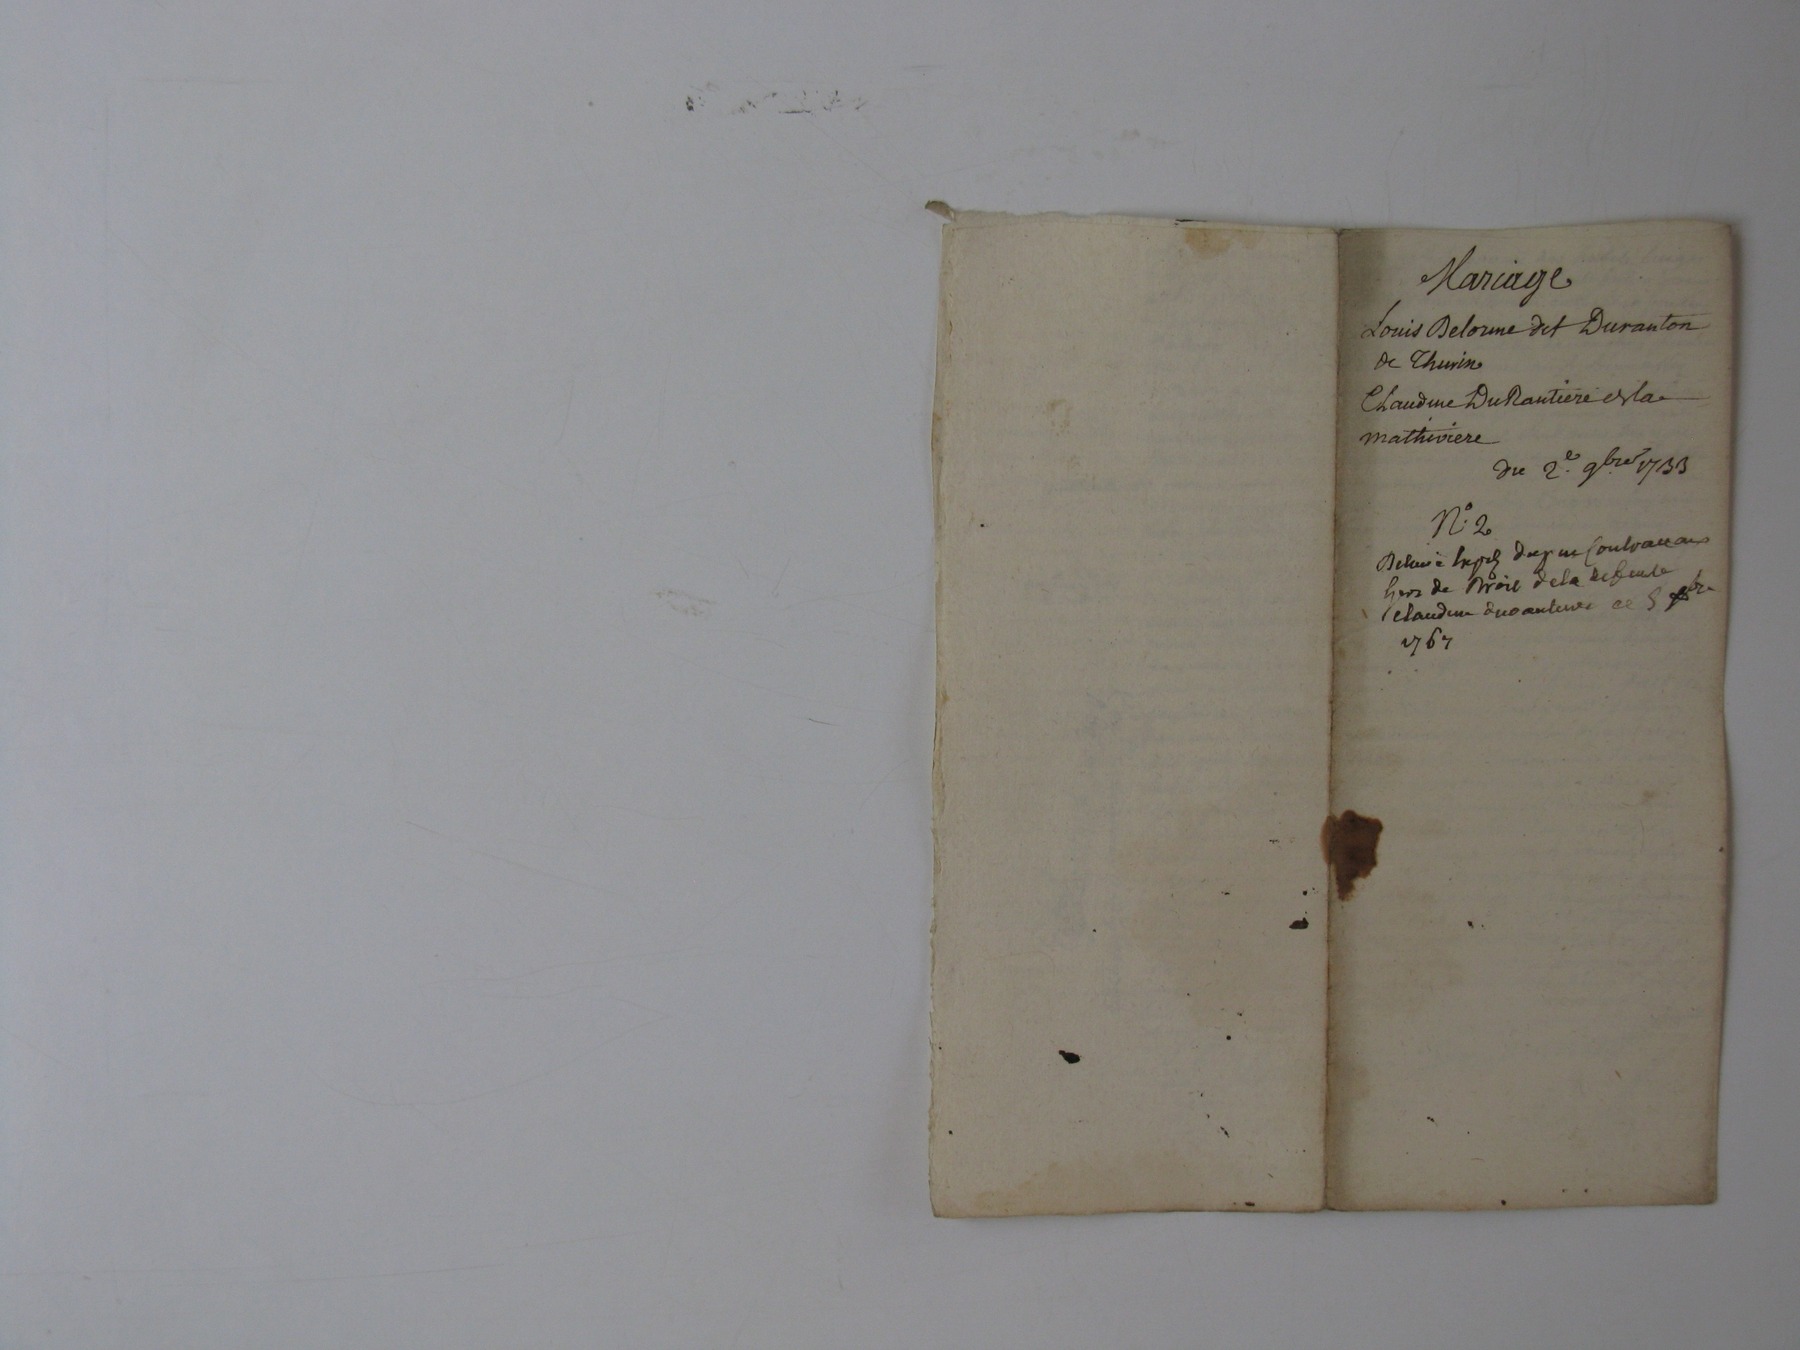 Mariage
Louis Delorme dit Duranton
de Thurin
Claudine DuRantiere de la
mathiviere
du 2e. 9bre 1733
N.° 2
hers de Droit de la defunte
claudine durantiere ce 5 xbre
1767